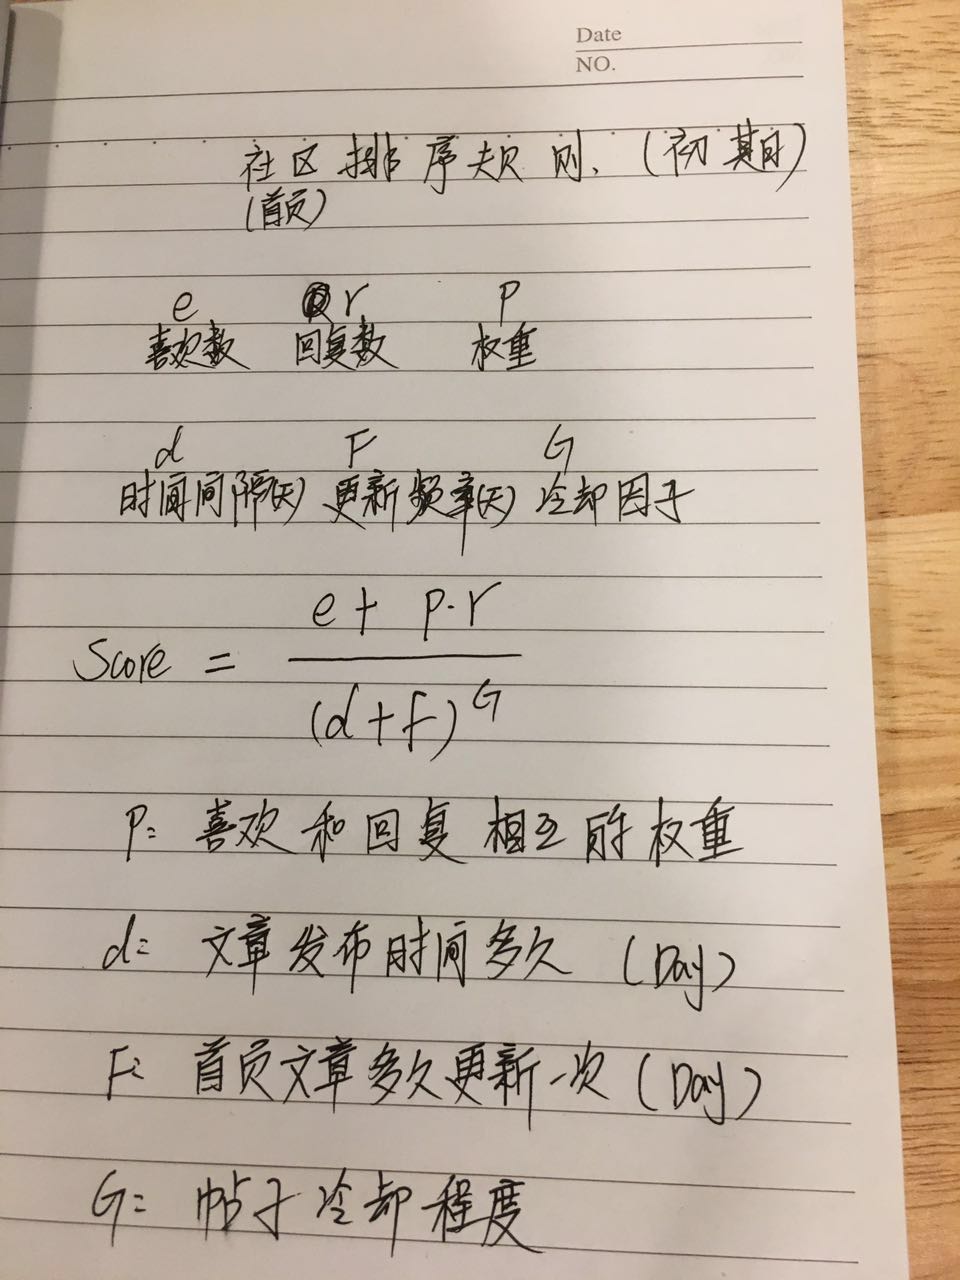 Date
NO.
社区排序规则、(初期)
(首页)
e r p
喜欢数 回复数 权重
d F G
时间间隔(天) 更新频率(天) 冷却因子
e + p·r
Score =
(d+f)^G
P: 喜欢和回复相互的权重
d: 文章发布时间多久 (Day)
F: 首页文章多久更新一次 (Day)
G: 帖子冷却程度